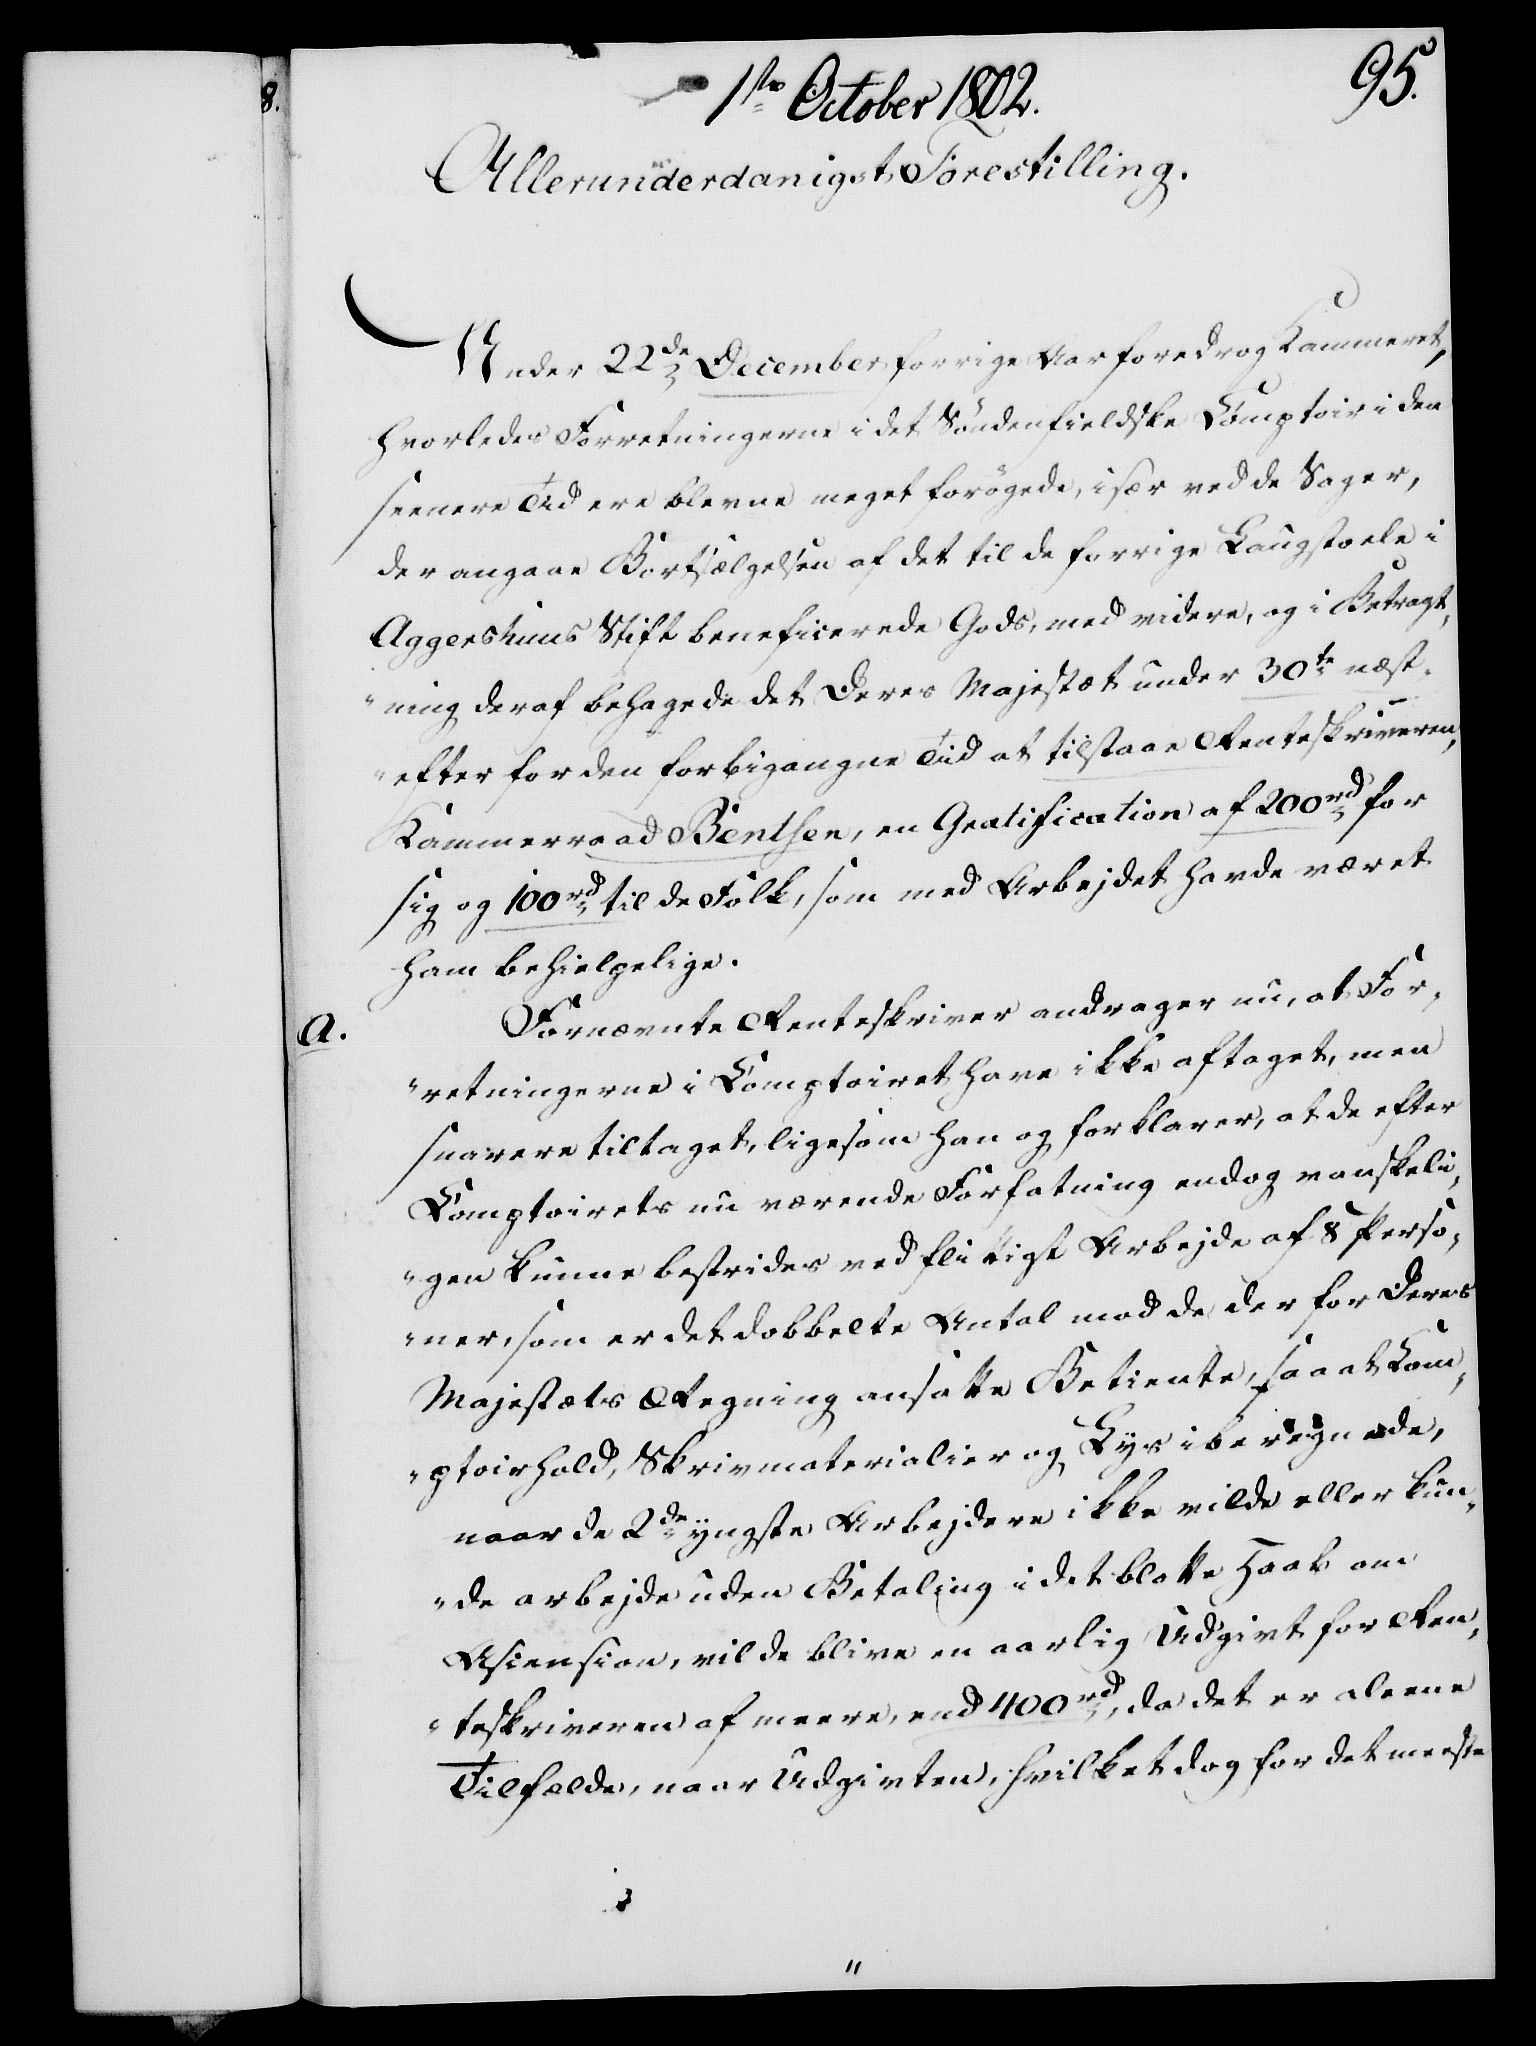 8.
1ste October 1802.
95.
Allerunderdanigst Forestilling.
Under 22de December forrige Aar foredrog Kammeret,
hvorledes Forretningerne i det Söndenfieldske Comptoir i den
seenere Tid ere blevne meget forögede, især ved de Sager,
der angaae Bortsælgelsen af det til de forrige Laugstoele i
Aggershuus Stift beneficerede Gods, med videre, og i Betragt„
„ning deraf behagede det Deres Majestæt under 30te næst„
„efter for den forbigangne Tid at tilstaae Renteskriveren,
Kammerraad Benthen, en Gratification af 200rd for
sig og 100rd til de Folk, som med Arbejdet havde været
ham behielpelige.
a.
Fornævnte Renteskriver andrager nu, at For„
„retningerne i Comptoiret have ikke aftaget, men
snarere tiltaget, ligesom han og forklarer, at de efter
Comptoirets nu værende Forfatning endog vanskeli„
„gen kunne bestrides ved flittigt Arbejde af 8 Perso„
„ner, som er det dobbelte Antal mod de der for Deres
Majestæts Regning ansatte Betiente, saa at Com„
„ptoirhold, Skrivmaterialier og Lys iberegnede,
naar de 2de yngste Arbejdere ikke vilde eller kun„
„de arbejde uden Betaling i det blotte Haab om
Asiension, vilde blive en aarlig Udgivt for Ren„
„teskriveren af meere, end 400rd, da det er aleene
Tilfælde, naar Udgivten, hvilket dog for det meeste